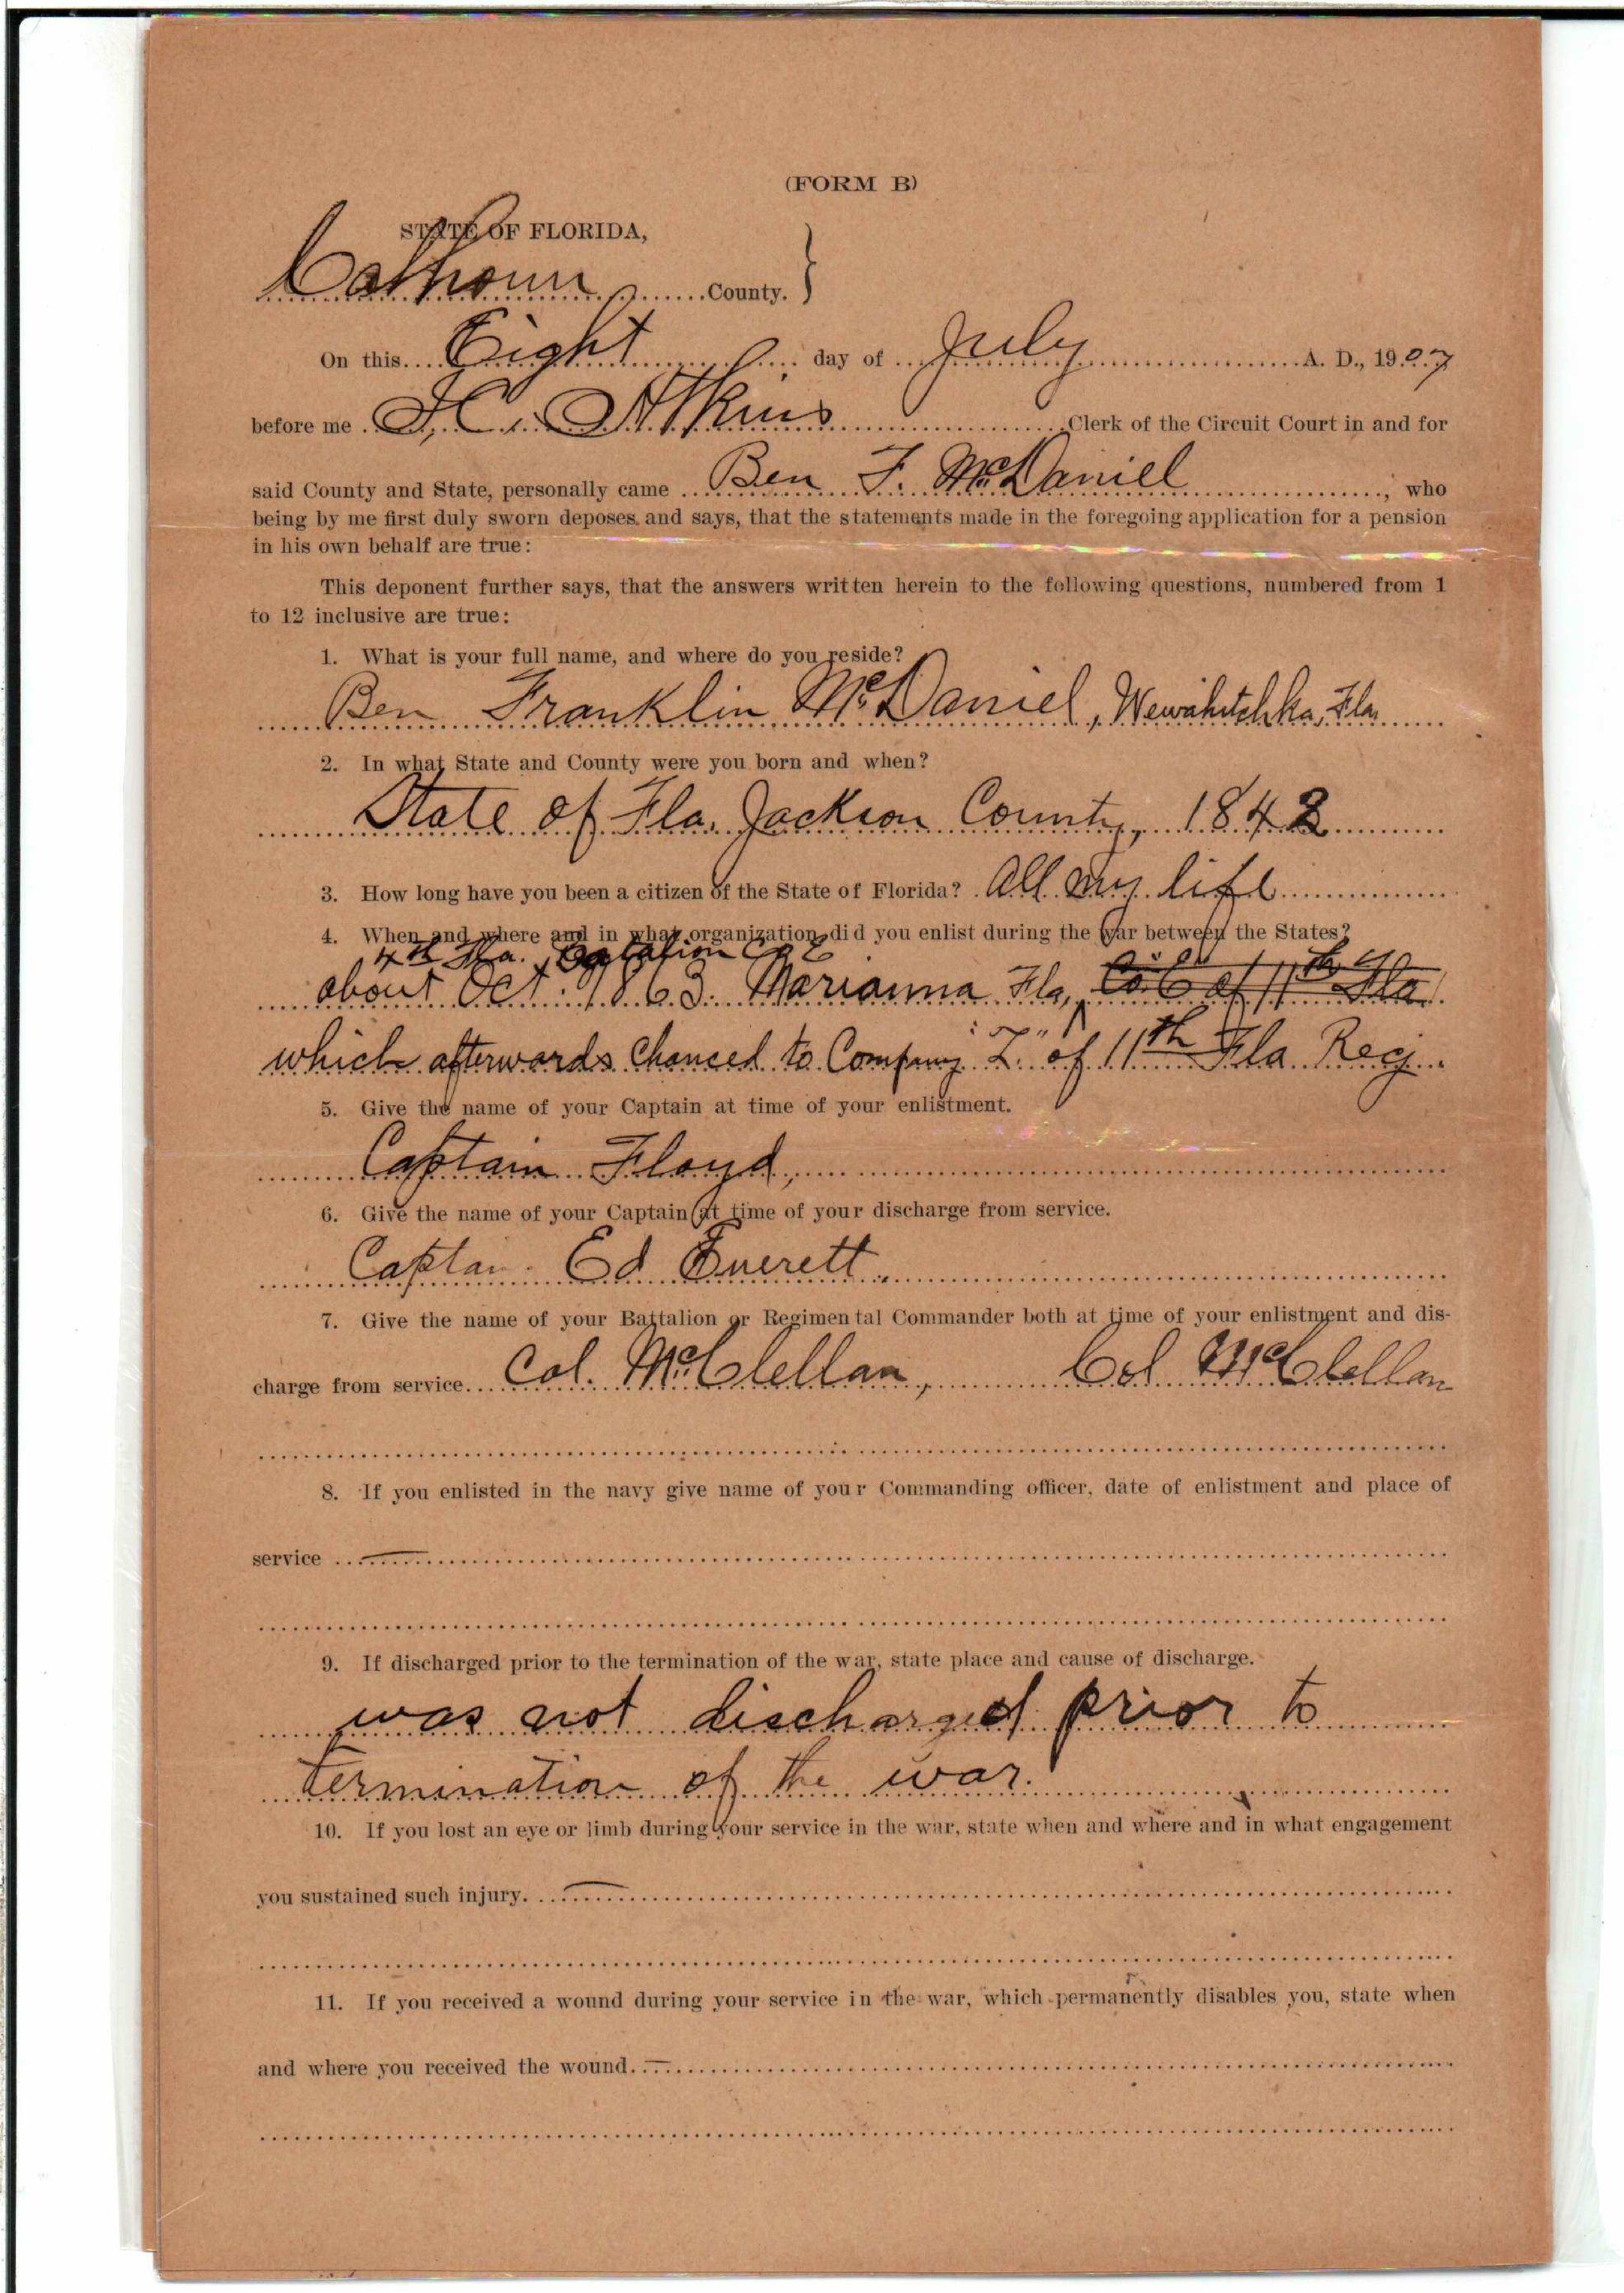 (FORM B)
STATE OF FLORIDA,
Calhoun County. }
On this Eight day of July A. D., 1907
before me J. C. Atkins Clerk of the Circuit Court in and for
said County and State, personally came Ben F. McDaniel, who
being by me first duly sworn deposes and says, that the statements made in the foregoing application for a pension
in his own behalf are true:
This deponent further says, that the answers written herein to the following questions, numbered from 1
to 12 inclusive are true:
1. What is your full name, and where do you reside?
Ben Franklin McDaniel, Wewahitchka, Fla
2. In what State and County were you born and when?
State of Fla, Jackson County, 1842
3. How long have you been a citizen of the State of Florida? All my life
4. When and where and in what organization did you enlist during the war between the States?
4th Fla. Batalion Co E
about Oct. 1863. Marianna Fla, Co. of 11th Fla.
which afterwards chanced to Company "I" of 11th Fla Reg.
5. Give the name of your Captain at time of your enlistment.
Captain Floyd,
6. Give the name of your Captain at time of your discharge from service.
Captain Ed Everett
7. Give the name of your Battalion or Regimental Commander both at time of your enlistment and dis-
charge from service. Col. McClellan, Col McClellan
8. If you enlisted in the navy give name of your Commanding officer, date of enlistment and place of
service —
9. If discharged prior to the termination of the war, state place and cause of discharge.
was not discharged prior to
termination of the war.
10. If you lost an eye or limb during your service in the war, state when and where and in what engagement
you sustained such injury. —
11. If you received a wound during your service in the war, which permanently disables you, state when
and where you received the wound. —